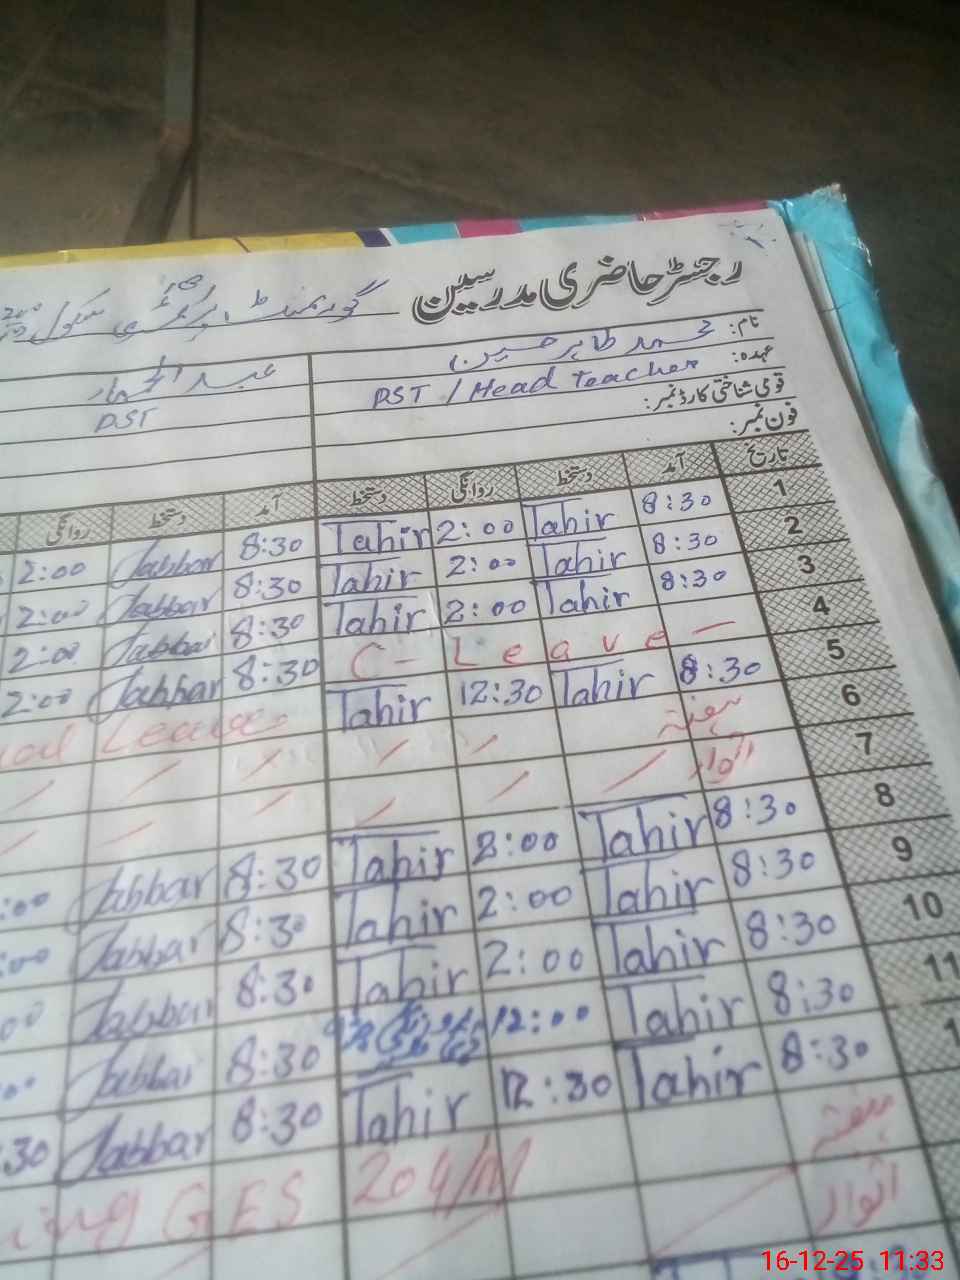 رجسٹر حاضری مدرسین
گورنمنٹ پرائمری سکول
نام: محمد طاہر حسین
عبد الجبار
عہدہ: PST / Head Teacher
PST
قومی شناختی کارڈ نمبر:
فون نمبر:
تاریخ آمد دستخط روانگی دستخط آمد دستخط روانگی
1 8:30 Tahir 2:00 Tahir 8:30 Jabbar 2:00
2 8:30 Tahir 2:00 Tahir 8:30 Jabbar 2:00
3 8:30 Tahir 2:00 Tahir 8:30 Jabbar 2:00
4 C - Leave - 8:30 Jabbar 2:00
5 8:30 Tahir 12:30 Tahir Leave
6 ہفتہ
7 اتوار
8 8:30 Tahir 2:00 Tahir 8:30 Jabbar :00
9 8:30 Tahir 2:00 Tahir 8:30 Jabbar :00
10 8:30 Tahir 2:00 Tahir 8:30 Jabbar 00
11 8:30 Tahir 12:00 8:30 Jabbar
1 8:30 Tahir 12:30 Tahir 8:30 Jabbar :30
ہفتہ GES 204/
اتوار
16-12-25 11:33